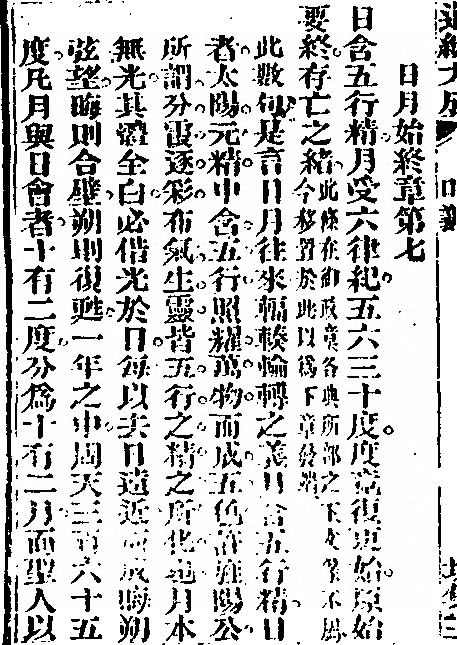 日月始終章第七
日含五行精月受六律紀五六三十度度竟復更始原始
要終存亡之緒此條在御政章各典所部之下文義不屬
今移置於此以爲下章發端
此數句是言日月往來輻輳輪轉之義日含五行精日
者太陽元精中含五行照耀萬物而成五色許旌陽公
所謂分霞逐彩布氣生靈皆五行之精之所化也月本
無光其體全白必借光於日每以去日遠近而成晦朔
弦望晦則合璧朔則復甦一年之中周天三百六十五
度凡月與日會者十有二度分爲十有二月而聖人以